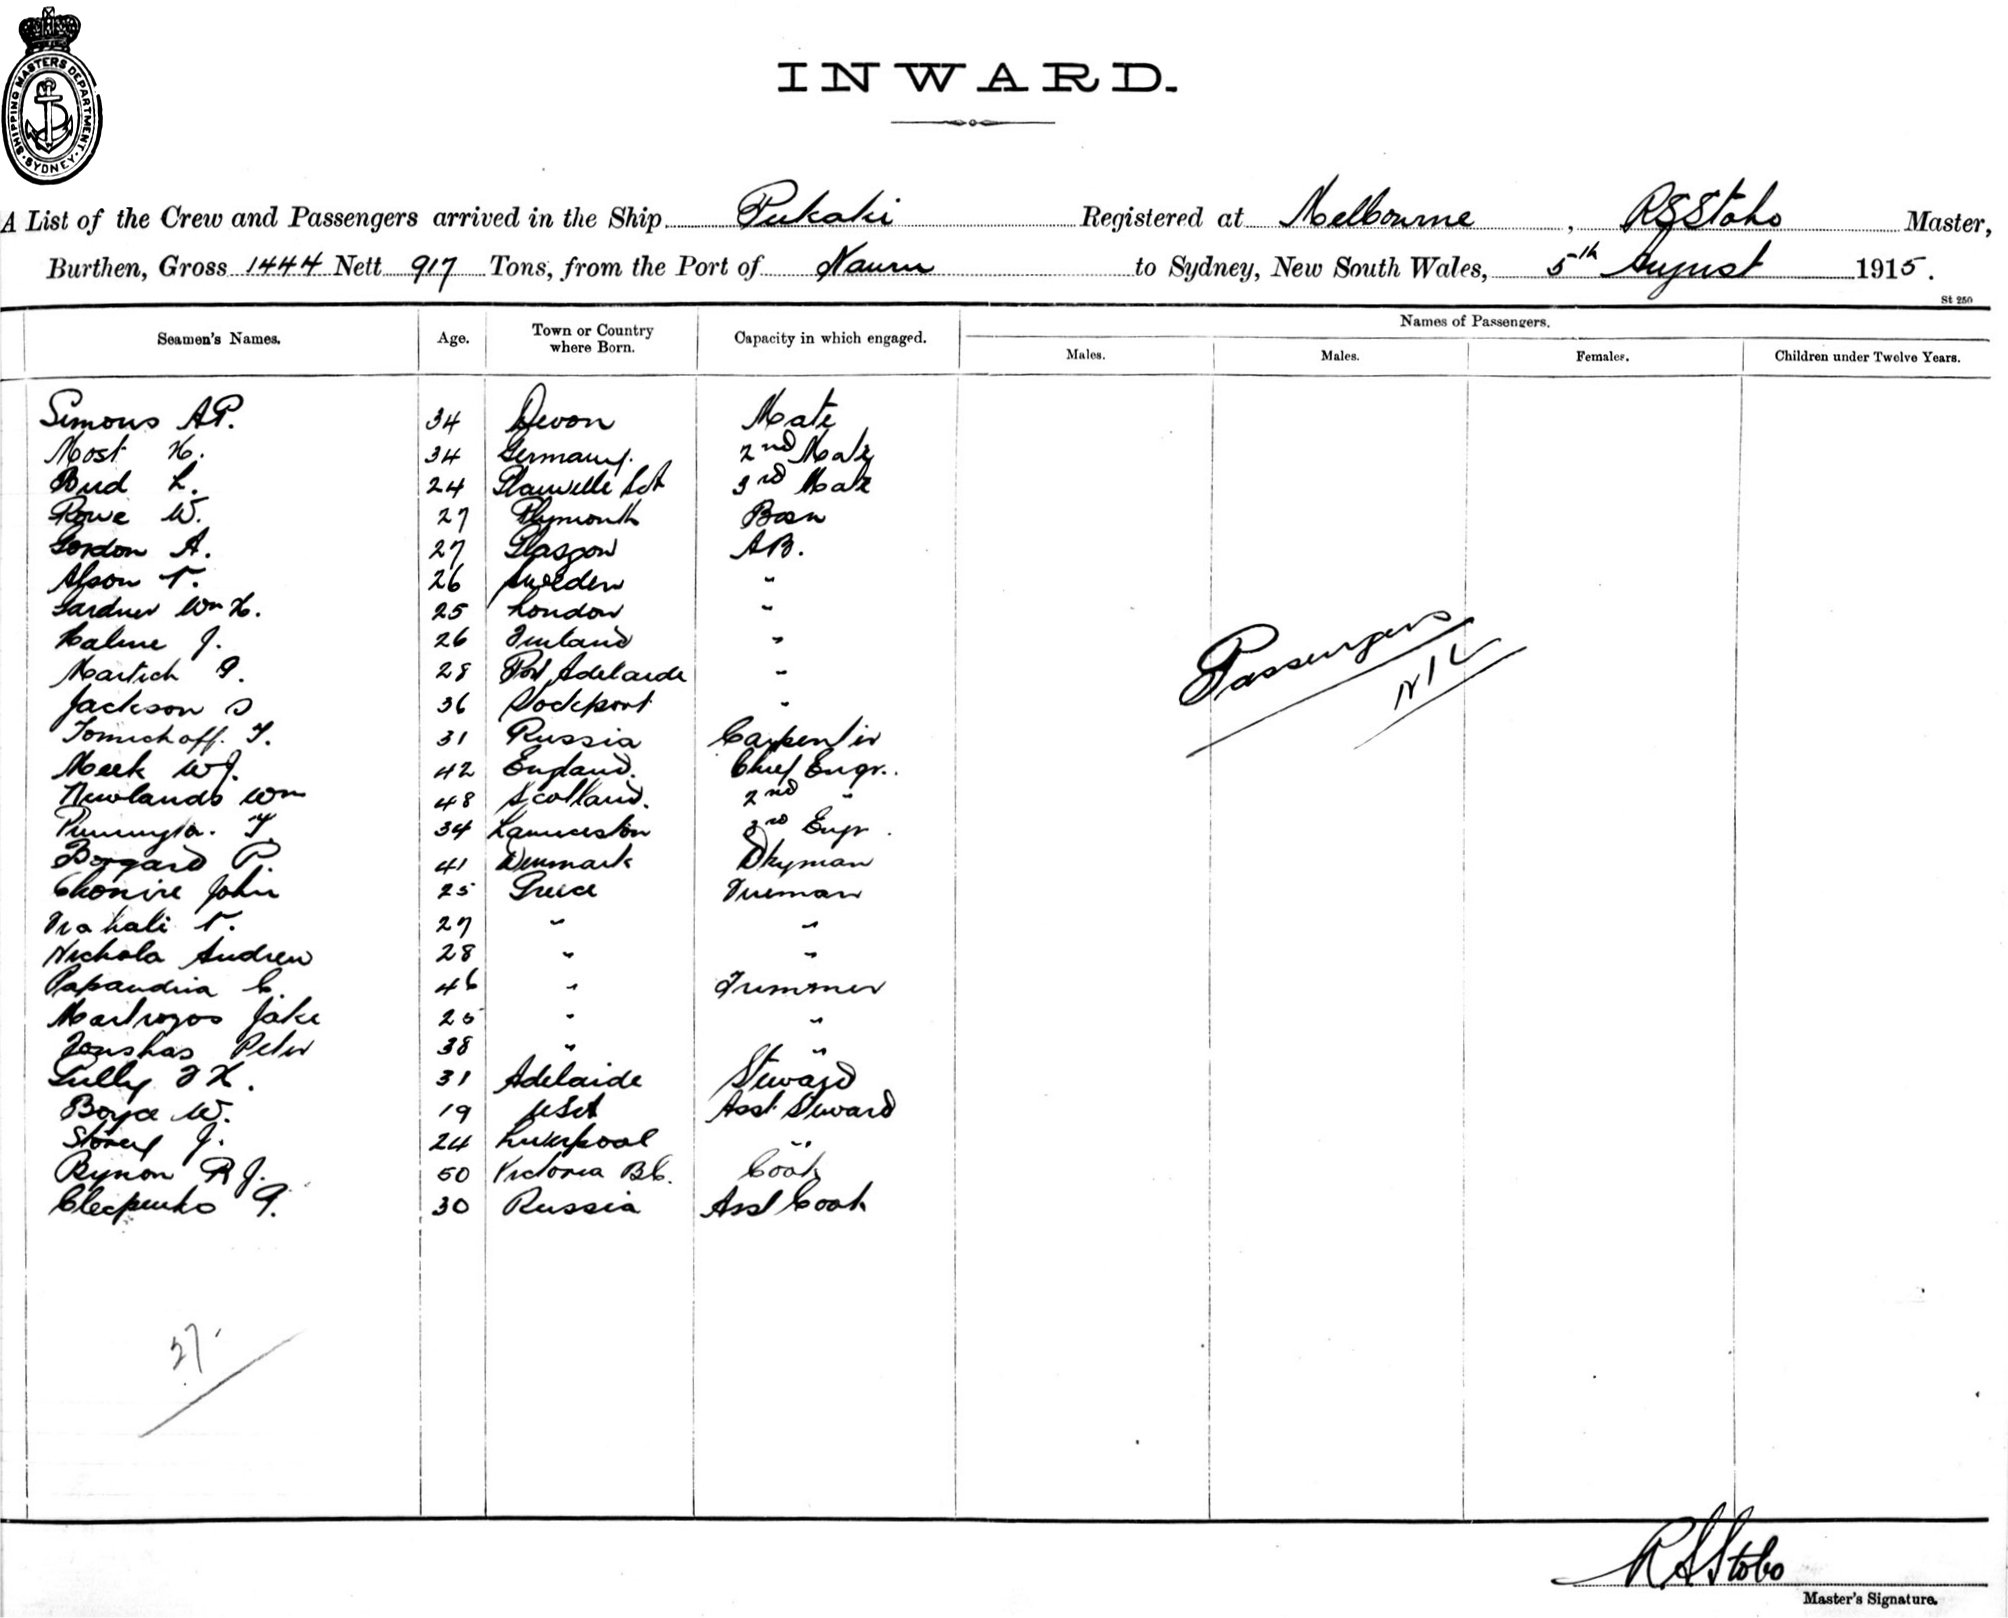 SHIPPING MASTERS DEPARTMENT. SYDNEY
INWARD.
A List of the Crew and Passengers arrived in the Ship Pukaki Registered at Melbourne, R S Stobo Master,
Burthen, Gross 1444 Nett 917 Tons, from the Port of Nauru to Sydney, New South Wales, 5th August 1915.
St 250
Seamen's Names. Age. Town or Country where Born. Capacity in which engaged. Names of Passengers.
Males. Males. Females. Children under Twelve Years.
Simons A P. 34 Devon Mate
Most H. 34 Germany. 2nd Mate
L. 24 3rd Mate
Rowe W. 27 Plymouth Bosn
Gordon A. 27 Glasgow AB.
26 Sweden "
Gardner Wm H. 25 London "
J. 26 Finland "
Martich 28 Port Adelaide "
Jackson 36 Stockport "
31 Russia Carpenter
Meek W J. 42 England. Chief Engr.
Newlands Wm 48 Scotland. 2nd "
34 Launceston 3rd Engr.
P. 41 Denmark Dkyman
John 25 Greece Fireman
27 " "
Nichola Andrew 28 " "
C. 46 " Trimmer
Jake 25 " "
Peter 38 " "
31 Adelaide Steward
Boyce W. 19 USA Asst Steward
Storey J. 24 Liverpool "
Bynon R J. 50 Victoria B C. Cook
30 Russia Asst Cook
Passengers
NIL
27
R S Stobo
Master's Signature.